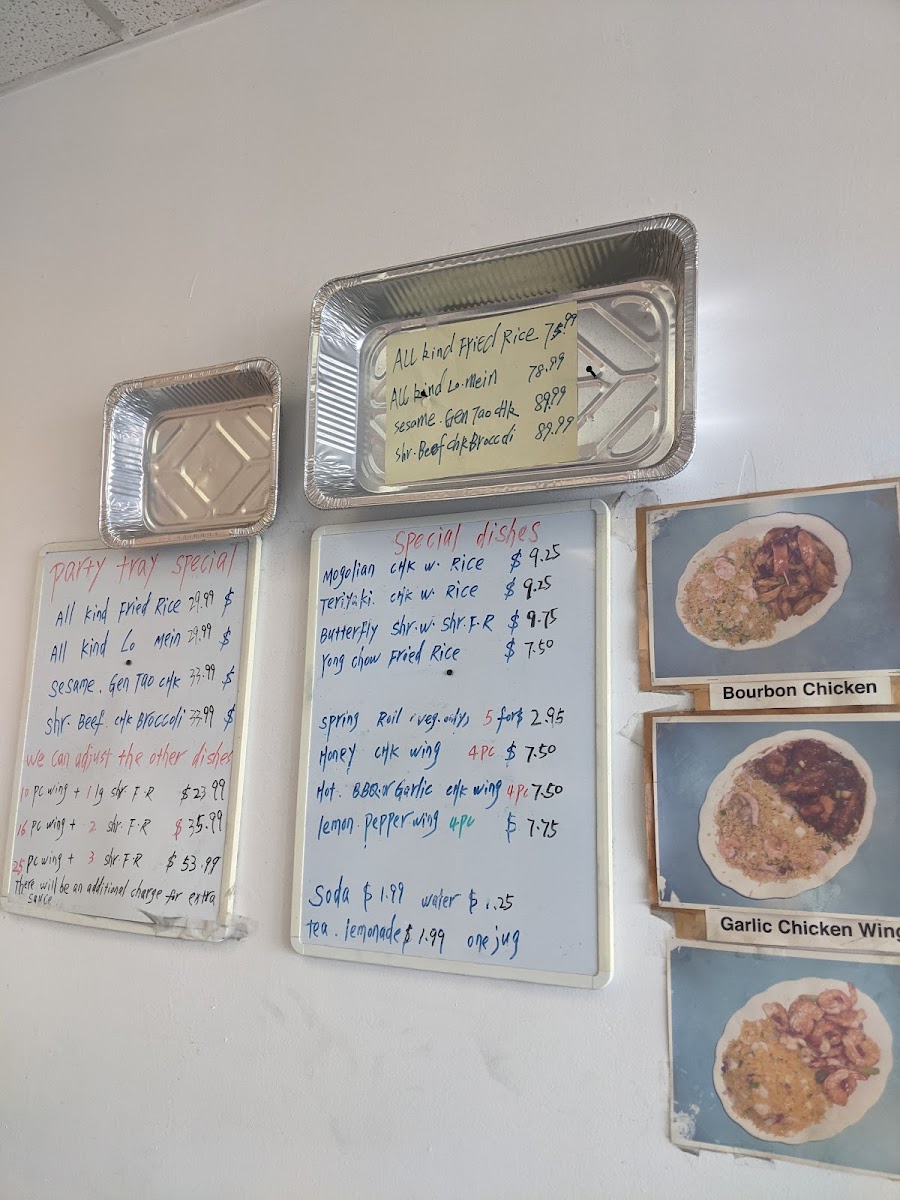 ALL kind Fried Rice 75.99
ALL kind Lo.mein 78.99
sesame. Gen Tao cHk 89.99
shr. Beef cHk Broccoli 89.99
party tray special
All kind Fried Rice 29.99 $
All kind Lo mein 29.99 $
Sesame. Gen Tao cHk 33.99 $
shr. Beef. cHk Broccoli 33.99 $
we can adjust the other dishes
10 pc wing + 1 lg shr F.R $23.99
16 pc wing + 2 shr. F.R $35.99
25 pc wing + 3 shr. F.R $53.99
There will be an additional charge for extra
sauce
special dishes
Mogolian cHk w. Rice $ 9.25
Teriyaki. cHk w. Rice $ 9.25
Butterfly shr. w. shr. F.R $ 9.75
Yong chow Fried Rice $ 7.50
spring Roll (veg.only) 5 for $ 2.95
Honey cHk wing 4pc $ 7.50
Hot. BBQ or Garlic cHk wing 4pc 7.50
lemon. pepper wing 4pc $ 7.75
Soda $ 1.99 water $ 1.25
tea. lemonade $ 1.99 one jug
Bourbon Chicken
Garlic Chicken Wing